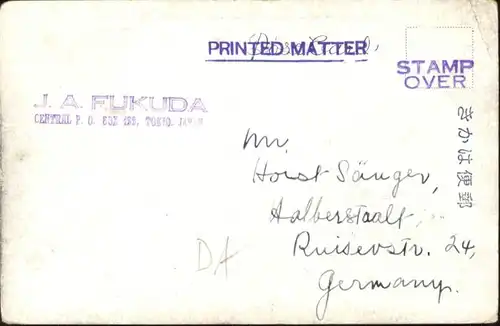 PRINTED MATTER
Post Card,
STAMP
OVER
J. A. FUKUDA
CENTRAL P. O. BOX 122, TOKYO, JAPAN
きかは便郵
Mr.
Horst Sänger,
Halberstaalt,
Ruisevstr. 24,
Germany.